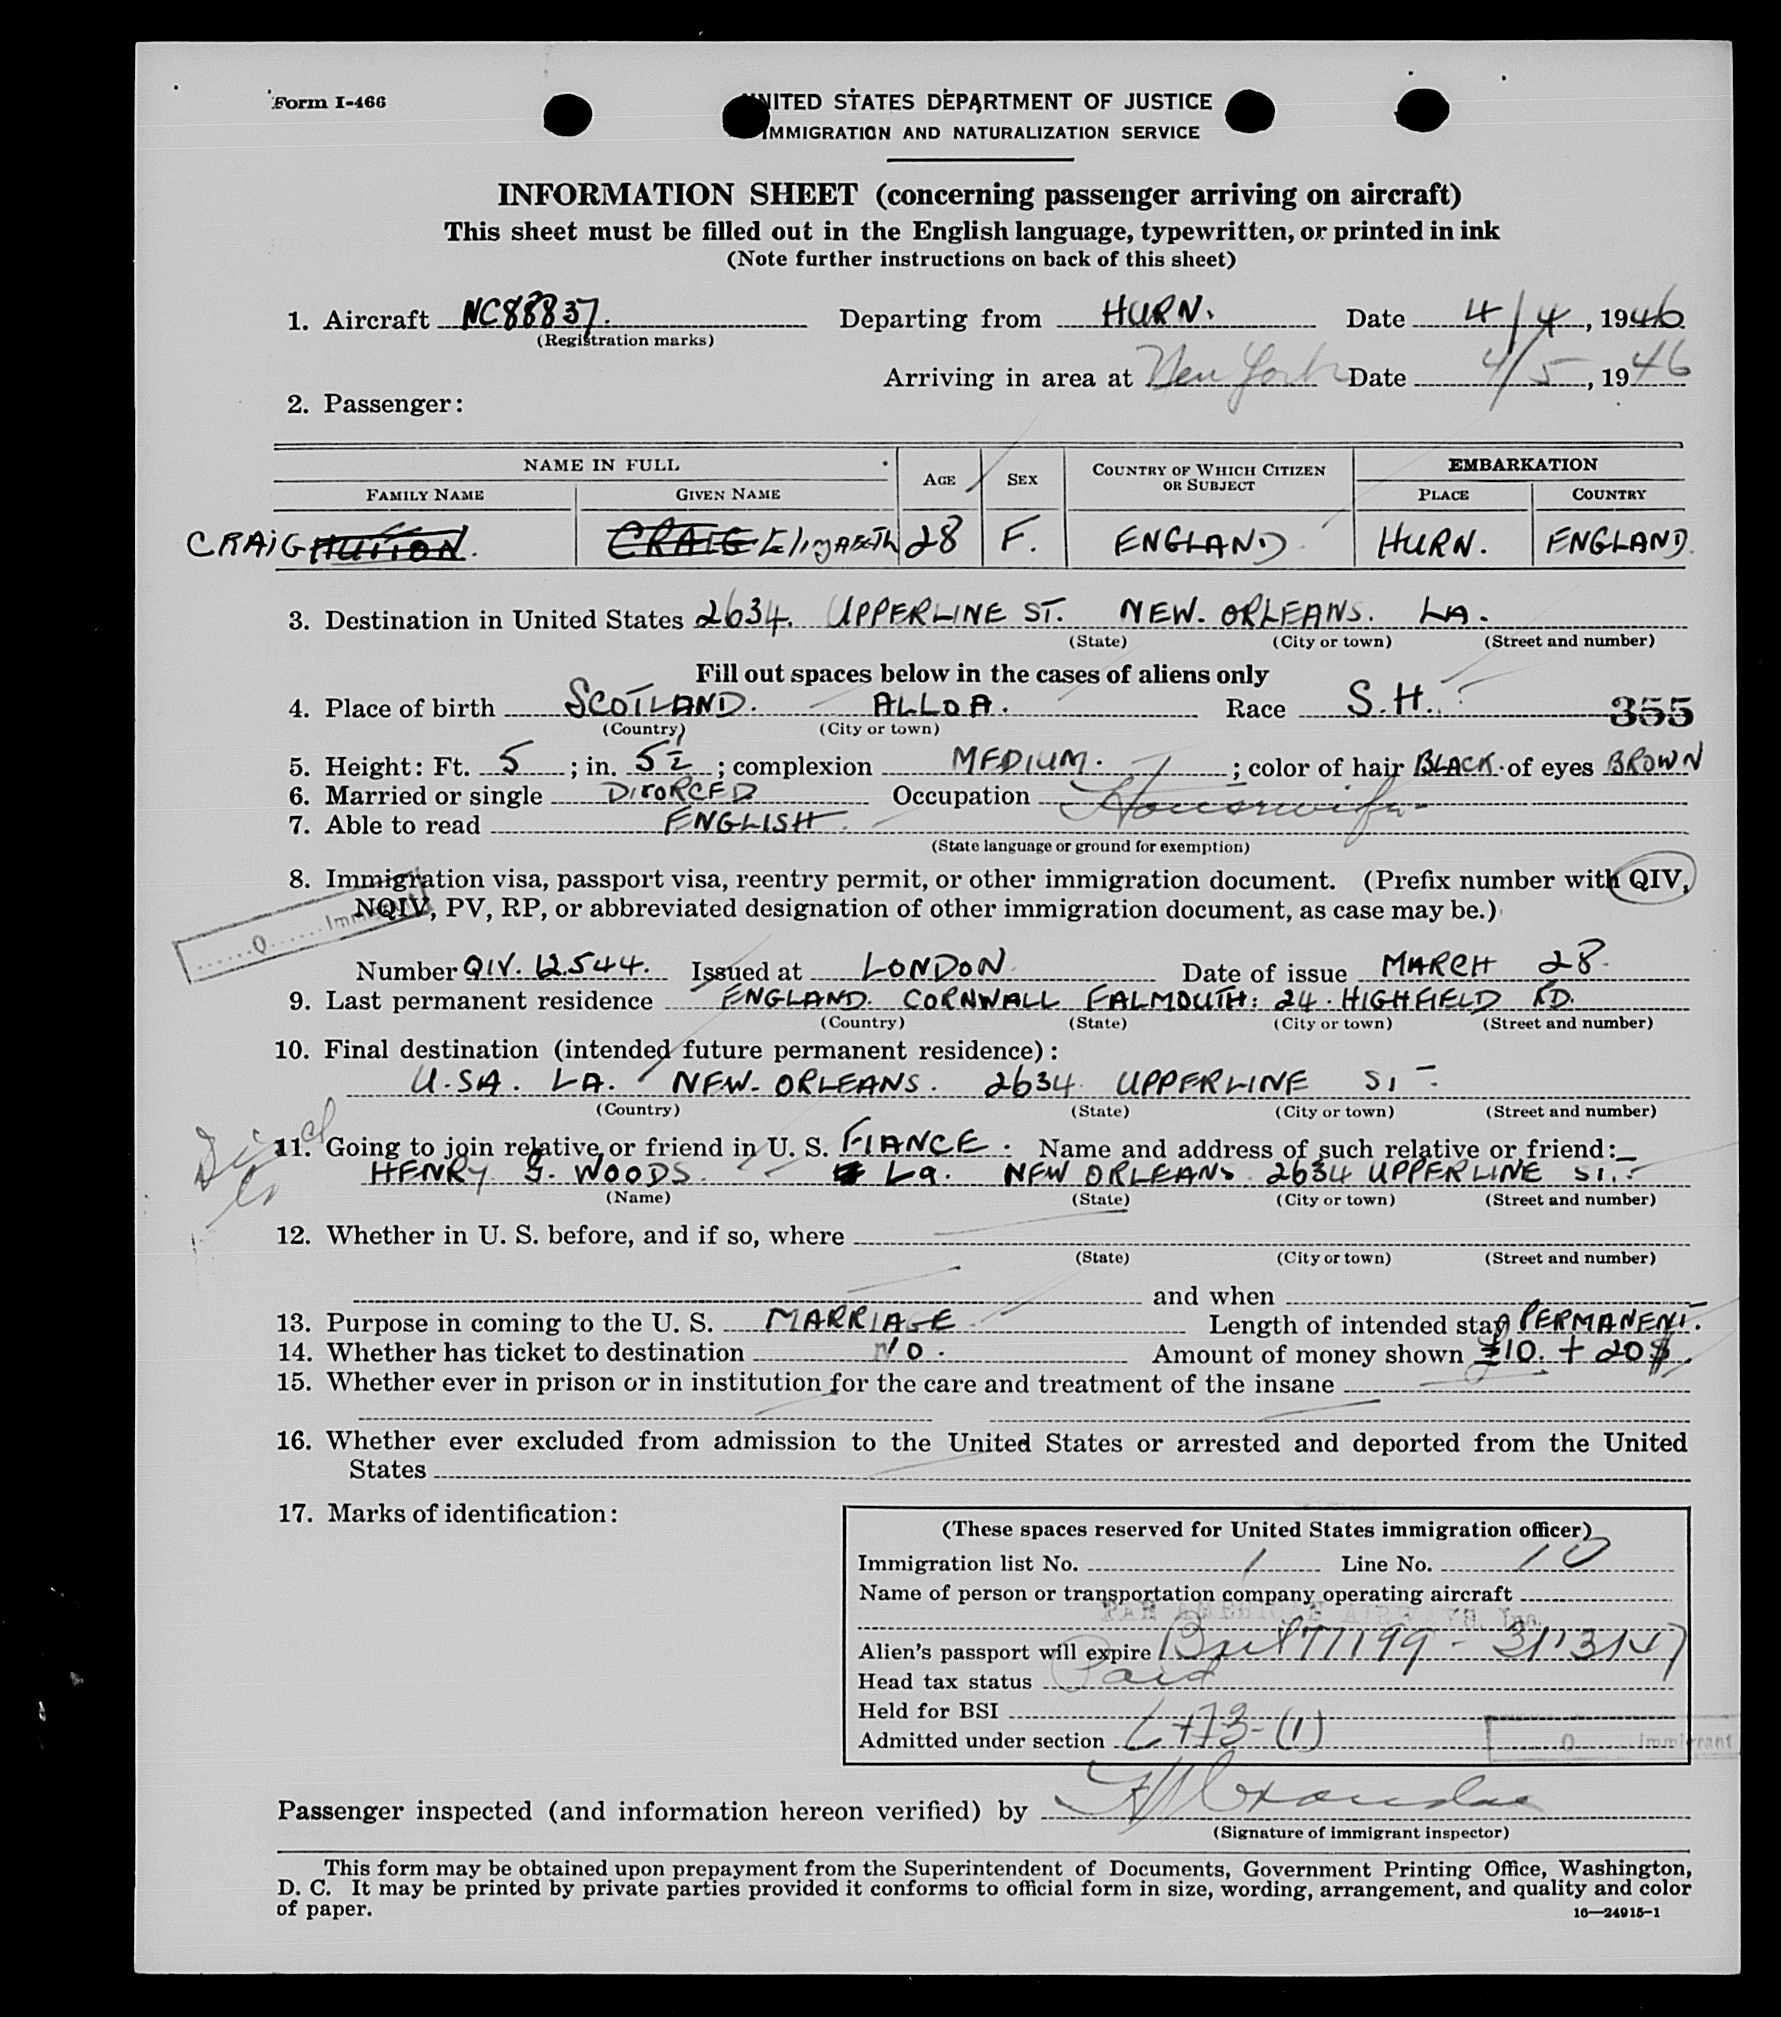 Form I-466
UNITED STATES DEPARTMENT OF JUSTICE
IMMIGRATION AND NATURALIZATION SERVICE
INFORMATION SHEET (concerning passenger arriving on aircraft)
This sheet must be filled out in the English language, typewritten, or printed in ink
(Note further instructions on back of this sheet)
1. Aircraft NC88837. Departing from HURN. Date 4/4, 1946
(Registration marks)
Arriving in area at New York Date 4/5, 1946
2. Passenger:
NAME IN FULL AGE SEX COUNTRY OF WHICH CITIZEN OR SUBJECT EMBARKATION
FAMILY NAME GIVEN NAME PLACE COUNTRY
CRAIG HUTTON. CRAIG ElizABETH 28 F. ENGLAND. HURN. ENGLAND.
3. Destination in United States 2634. UPPERLINE ST. NEW. ORLEANS. LA.
(State) (City or town) (Street and number)
Fill out spaces below in the cases of aliens only
4. Place of birth SCOTLAND. ALLOA. Race S.H.
355
(Country) (City or town)
5. Height: Ft. 5; in. 5½; complexion MEDIUM. ; color of hair BLACK. of eyes BROWN
6. Married or single DIVORCED Occupation Housewife
7. Able to read ENGLISH.
(State language or ground for exemption)
8. Immigration visa, passport visa, reentry permit, or other immigration document. (Prefix number with QIV,
NQIV, PV, RP, or abbreviated designation of other immigration document, as case may be.)
Number QIV. 12544. Issued at LONDON. Date of issue MARCH 28.
9. Last permanent residence ENGLAND. CORNWALL FALMOUTH: 24. HIGHFIELD RD.
(Country) (State) (City or town) (Street and number)
10. Final destination (intended future permanent residence):
U.SA. LA. NEW. ORLEANS. 2634. UPPERLINE ST.
(Country) (State) (City or town) (Street and number)
11. Going to join relative or friend in U. S. FIANCE. Name and address of such relative or friend:
HENRY G. WOODS. La. NEW ORLEANS. 2634 UPPERLINE ST.
(Name) (State) (City or town) (Street and number)
12. Whether in U. S. before, and if so, where
(State) (City or town) (Street and number)
and when
13. Purpose in coming to the U. S. MARRIAGE. Length of intended stay PERMANENT.
14. Whether has ticket to destination NO. Amount of money shown £10. + 20$.
15. Whether ever in prison or in institution for the care and treatment of the insane
16. Whether ever excluded from admission to the United States or arrested and deported from the United
States
17. Marks of identification:
(These spaces reserved for United States immigration officer)
Immigration list No. 1 Line No. 10
Name of person or transportation company operating aircraft
PAN AMERICAN AIRWAYS, Inc.
Alien's passport will expire
Head tax status Paid
Held for BSI
Admitted under section
Passenger inspected (and information hereon verified) by
(Signature of immigrant inspector)
This form may be obtained upon prepayment from the Superintendent of Documents, Government Printing Office, Washington,
D. C. It may be printed by private parties provided it conforms to official form in size, wording, arrangement, and quality and color
of paper.
16—24915-1